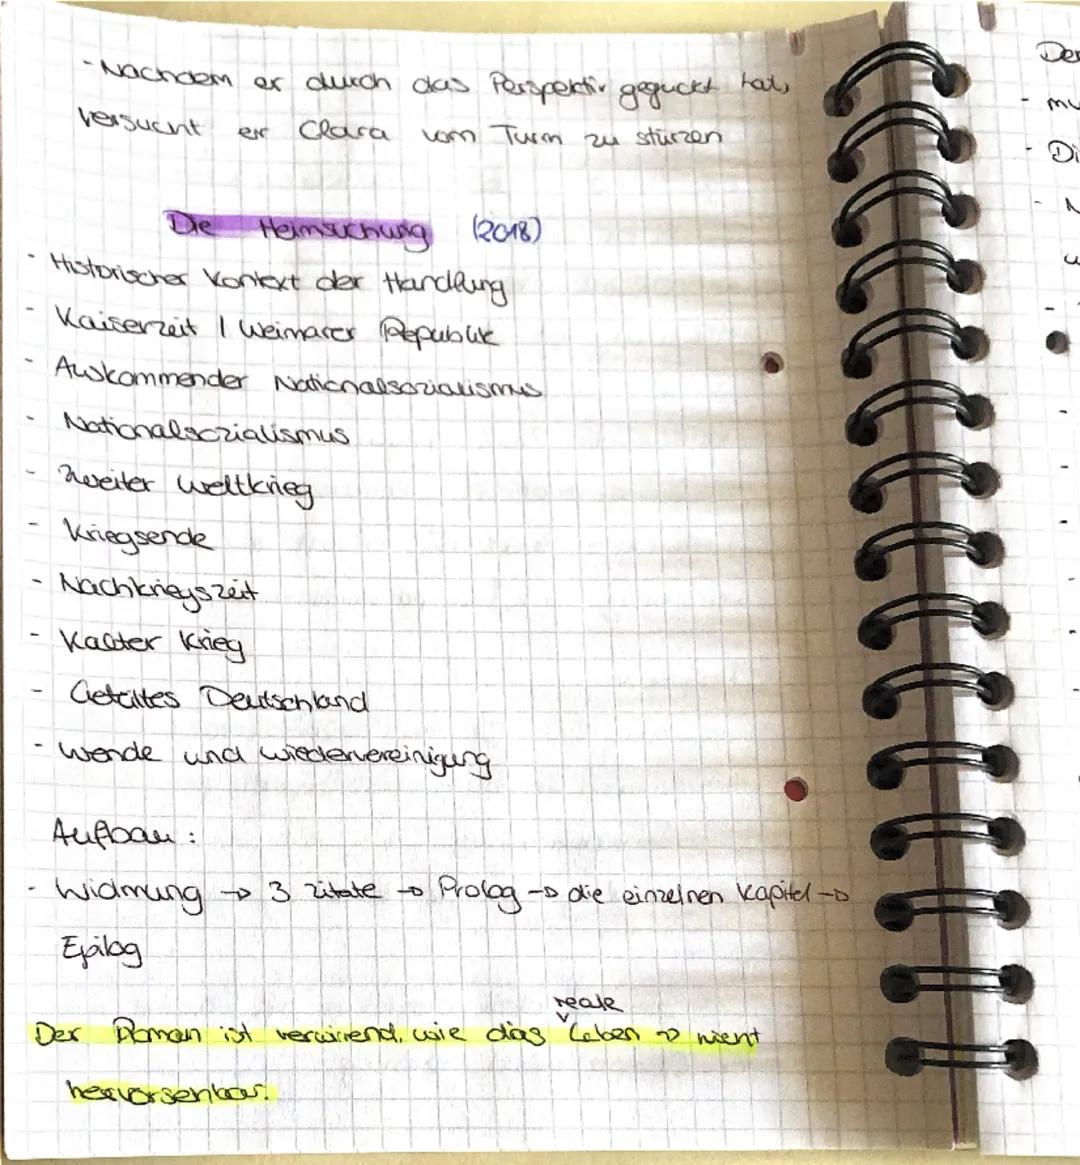 - Nachdem er durch das Perspektiv geguckt hat,
versucht er Clara vom Turm zu stürzen
Die Heimsuchung (2018)
- Historischer Kontext der Handlung
- Kaiserzeit / Weimarer Republik
- Aufkommender Nationalsozialismus
- Nationalsozialismus
- Zweiter Weltkrieg
- Kriegsende
- Nachkriegszeit
- Kalter Krieg
- Geteiltes Deutschland
- Wende und Wiedervereinigung
Aufbau:
- Widmung → 3 Zitate → Prolog → die einzelnen Kapitel →
Epilog
reale
Der Roman ist verwirrend, wie das Leben → nicht
hervorsehbar.